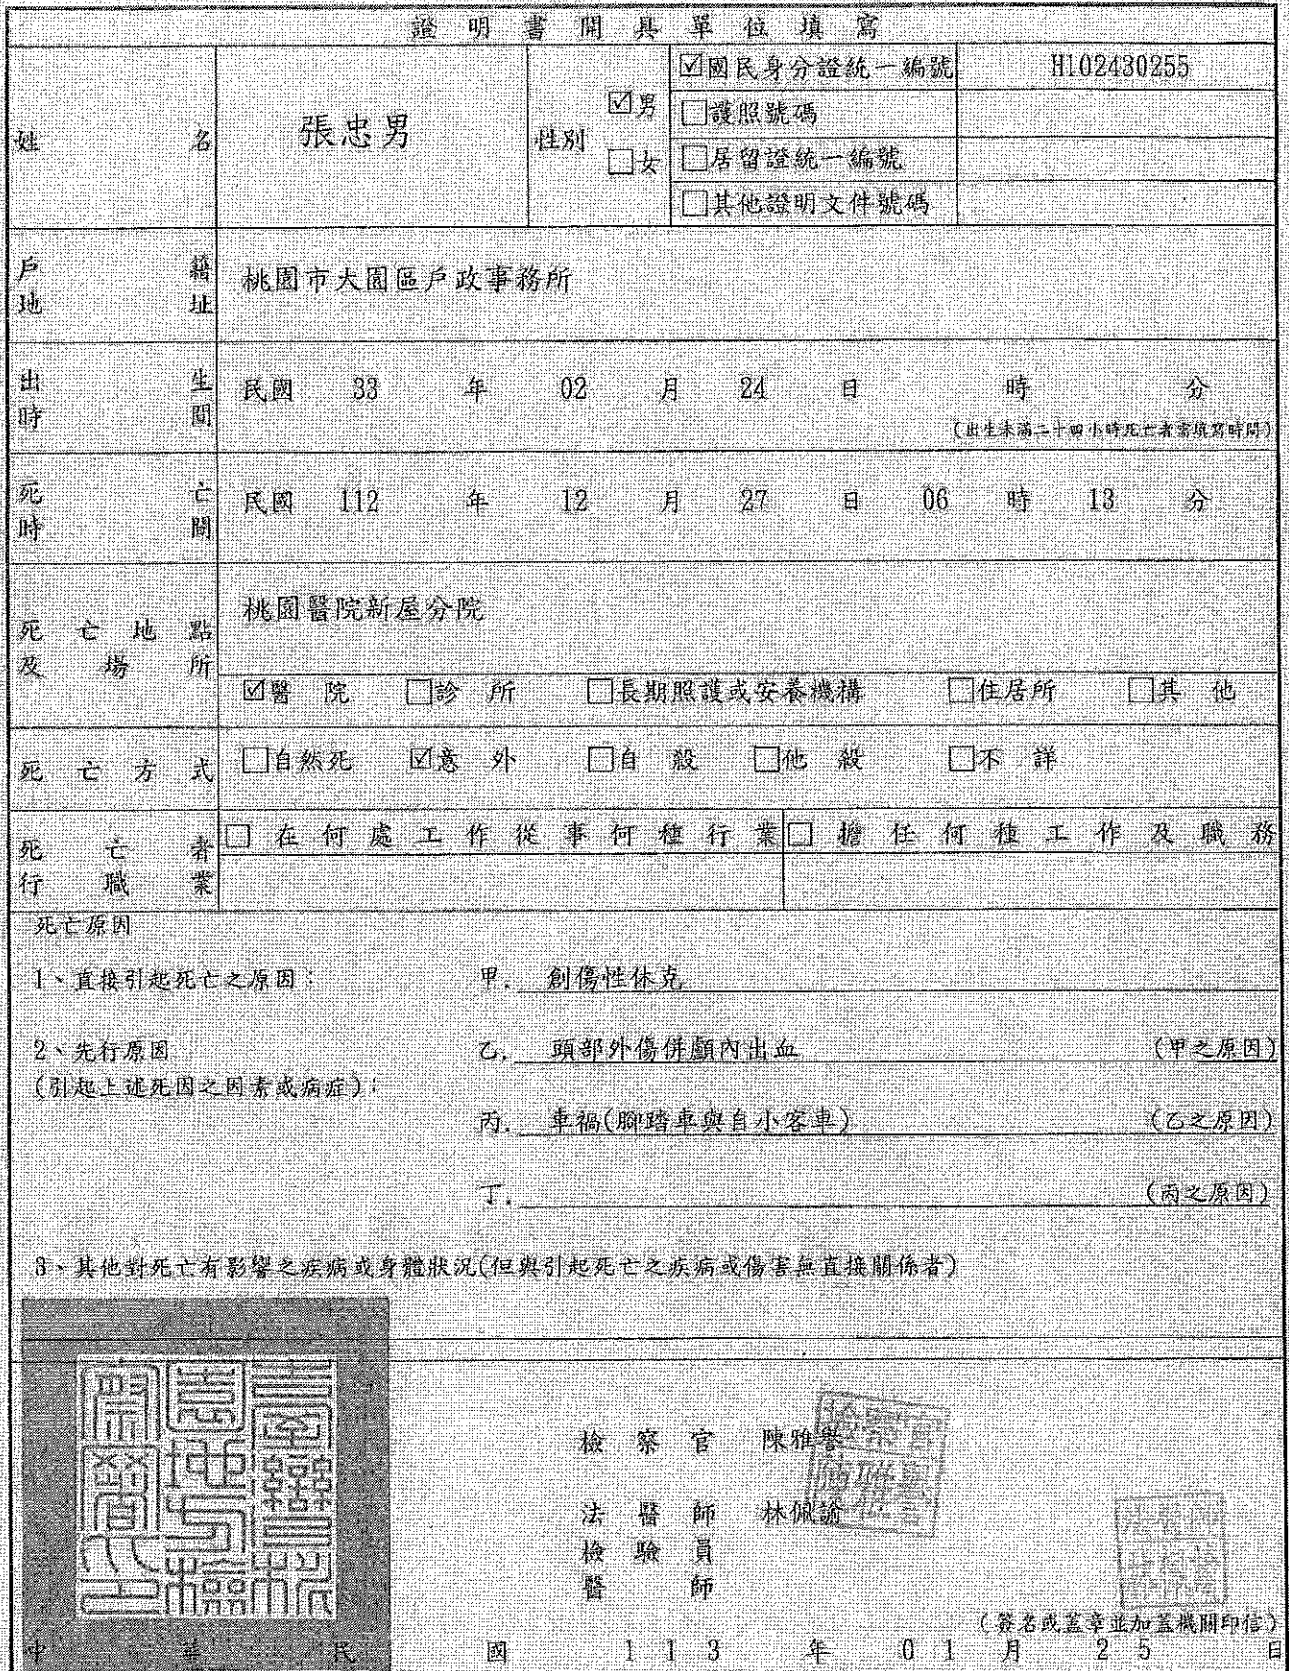 證明書開具單位填寫
姓名 張忠男 性別 ☑男 □女
☑國民身分證統一編號 H102430255
□護照號碼
□居留證統一編號
□其他證明文件號碼
戶籍地址 桃園市大園區戶政事務所
出生時間 民國 33 年 02 月 24 日 時 分
(出生未滿二十四小時死亡者需填寫時間)
死亡時間 民國 112 年 12 月 27 日 06 時 13 分
死亡地點及場所 桃園醫院新屋分院
☑醫院 □診所 □長期照護或安養機構 □住居所 □其他
死亡方式 □自然死 ☑意外 □自殺 □他殺 □不詳
死亡者行職業 □在何處工作從事何種行業 □擔任何種工作及職務
死亡原因
1、直接引起死亡之原因: 甲. 創傷性休克
2、先行原因 乙. 頭部外傷併顱內出血 (甲之原因)
(引起上述死因之因素或病症):
丙. 車禍(腳踏車與自小客車) (乙之原因)
丁. (丙之原因)
3、其他對死亡有影響之疾病或身體狀況(但與引起死亡之疾病或傷害無直接關係者)
檢察官 陳雅譽
法醫師 林佩諭
檢驗員
醫師
(簽名或蓋章並加蓋機關印信)
中華民國 113 年 01 月 25 日